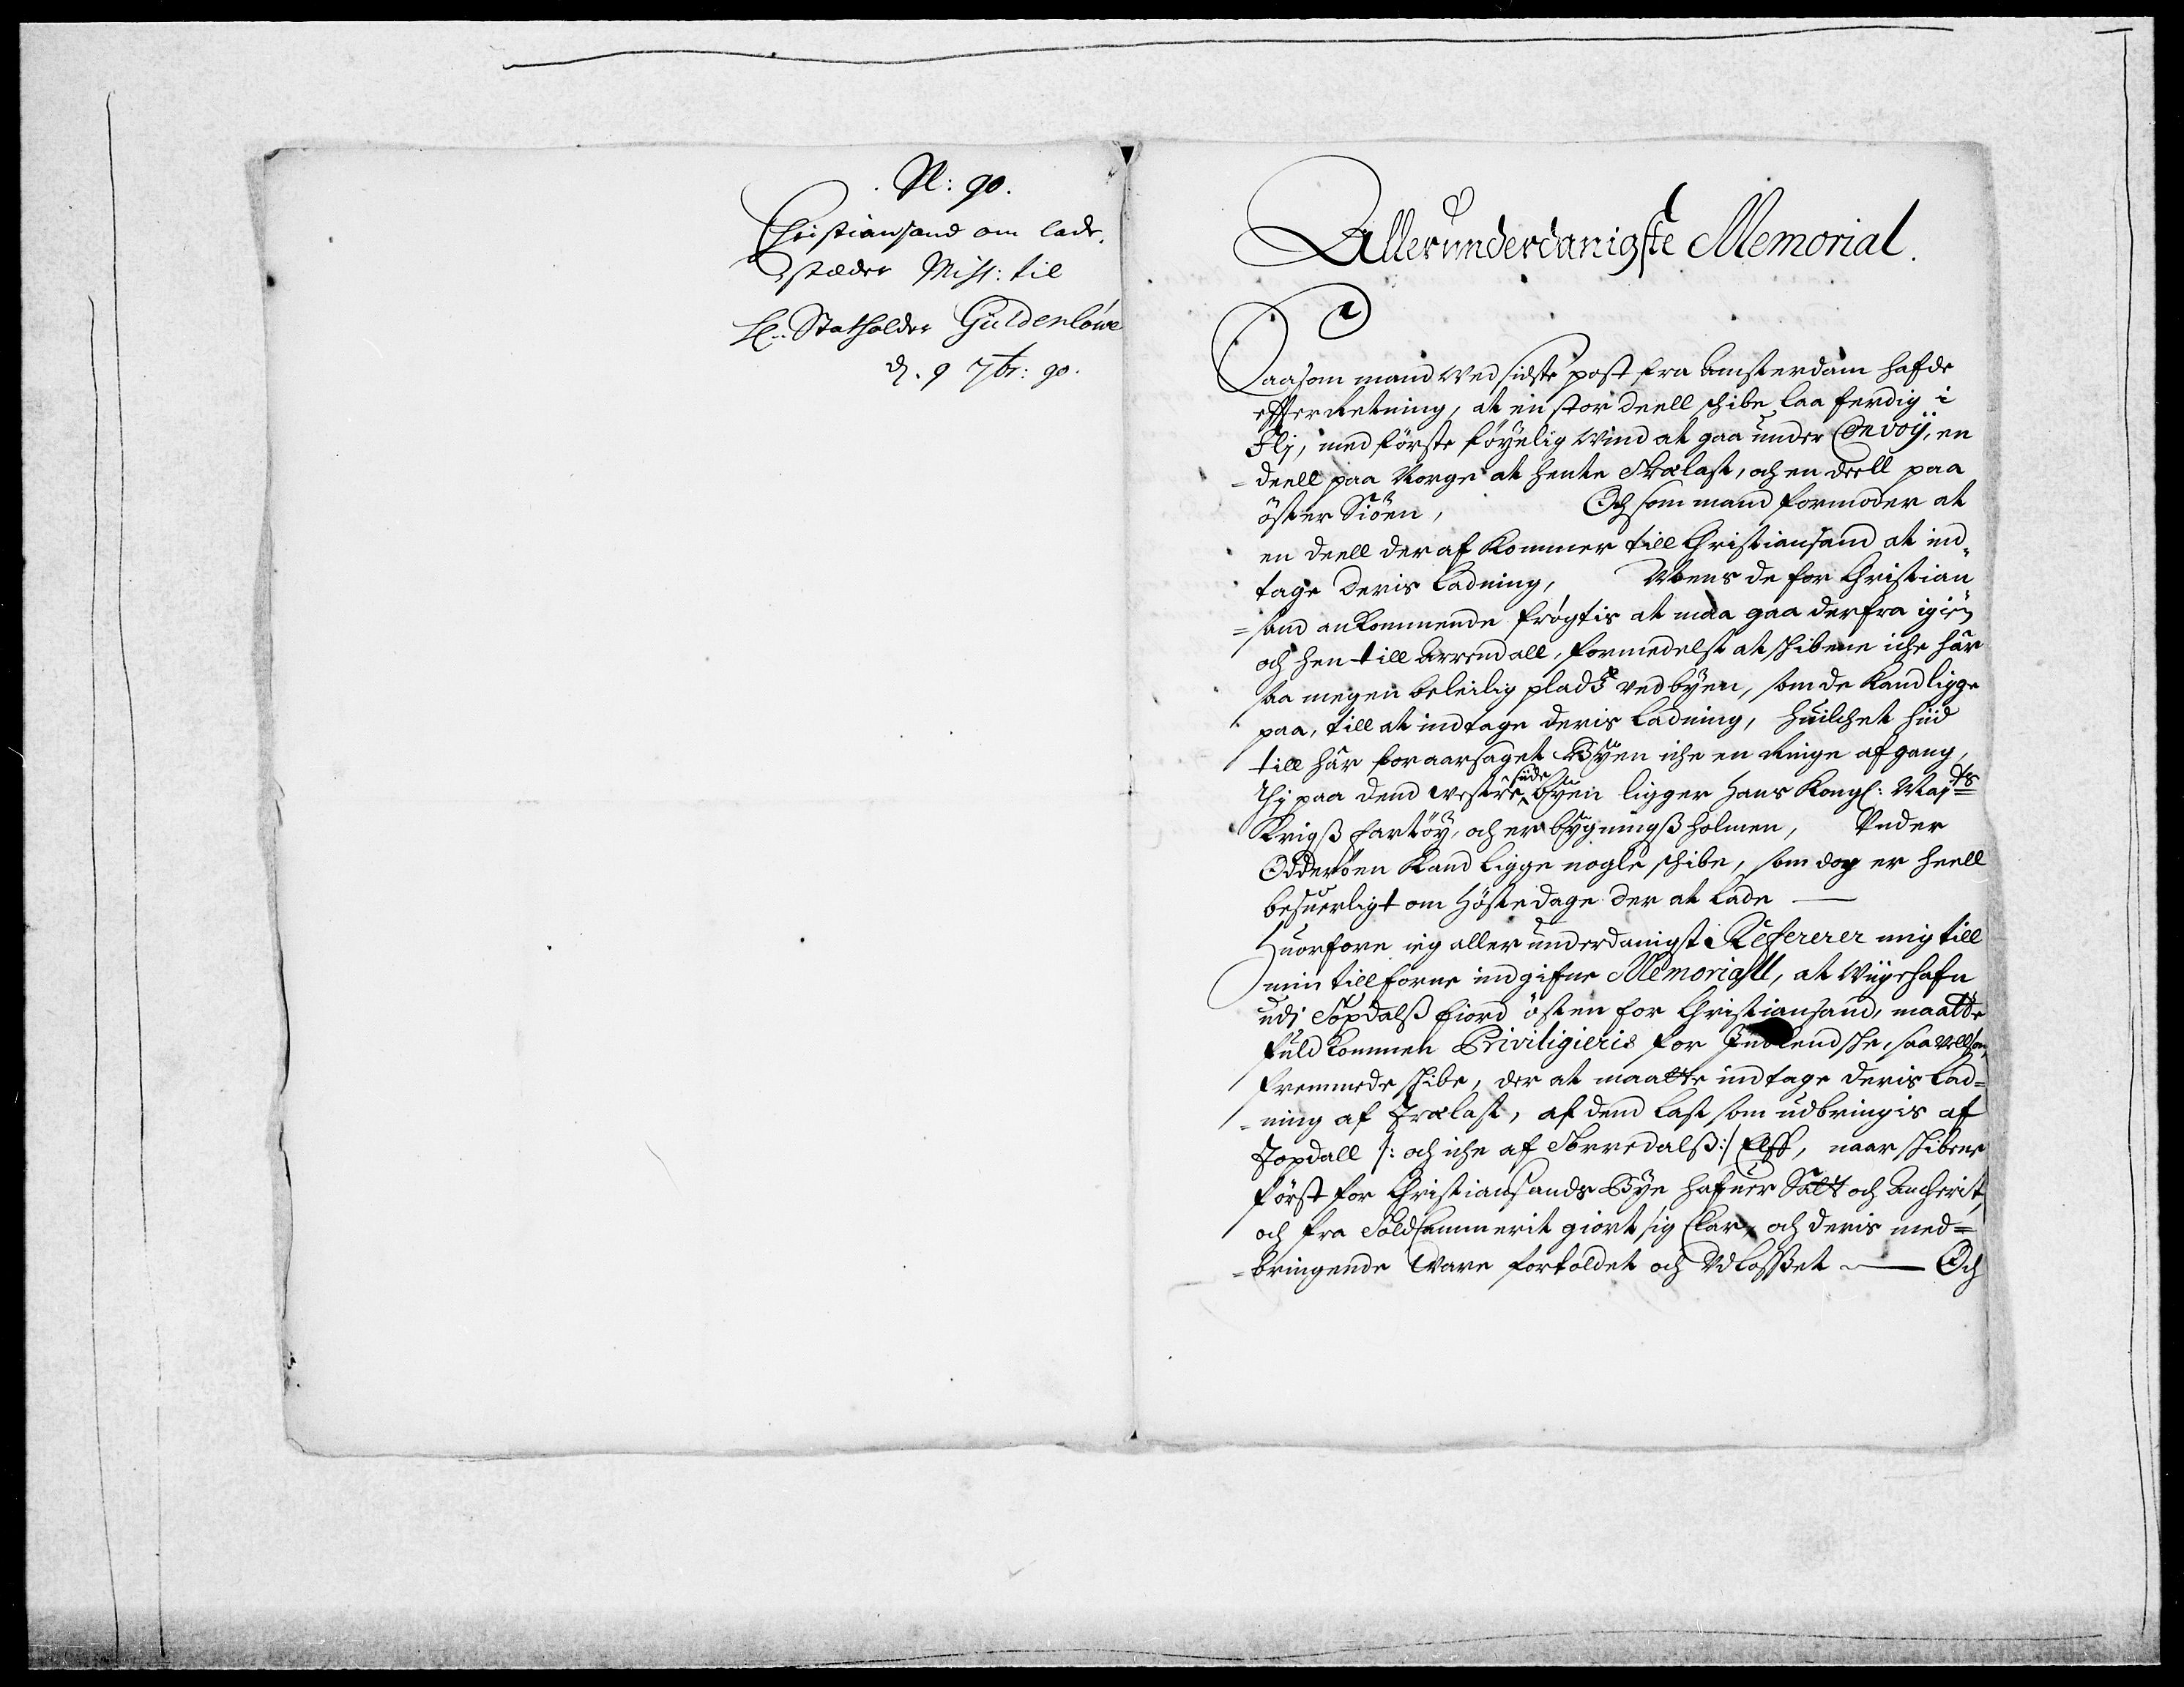 Sl: 90.
Christiansand om lade-
stæder Miss: til
H: Statholder Güldenlöwe
d. 9 7br: 90.
Allerunderdanigste Memorial.
Saasom mand Ved sidste post fra Amsterdam hafde
efferretning, at en stor deell schibe laa ferdig i
Flj, med förste föyelig Wind at gaa under Convoÿ, en
deell paa Norge at hente Trælast, och en deell paa
öster Siöen, Och som mand formoder at
en deell der af kommer till Christiansand at ind-
tage deris ladning, Mens de for Christian
=sand ankommende frögtis at maa gaa derfra igien
och hen till Arrendall, formedelst at schibene iche har
saa megen beleilig plads ved byen, som de kand ligge
paa, till at indtage deris ladning, huilchet hid
till har foraarsaget Byen iche en ringe afgang,
Thj paa dend westre side byen ligger Hans Kongl: Majts
Krigß fartöy, och er bygningß holmen, Under
Odderöen kand ligge nogle schibe, som dog er heell
besuerligt om Höste dage der at lade
Huorfore ieg aller underdanigst Refererer mig till
min tillforne indgifne Memoriall, at Wiigehafn
udj Topdalß fiord östen for Christiansand, maatte
fuldkommen Priviligieris for Indlendsche, saa vell som
fremmede schibe, der at maatte indtage deris lad=
=ning af Trælast, af dend last som udbringis af
Topdall /: och iche af Torredalß :/ Elff, naar schibene
först for Christiansands Bye hafuer Satt och Ancherit,
och fra Toldcammerit giort sig Clar, och deris med=
=bringende Vare fortoldet och Udlosset Och